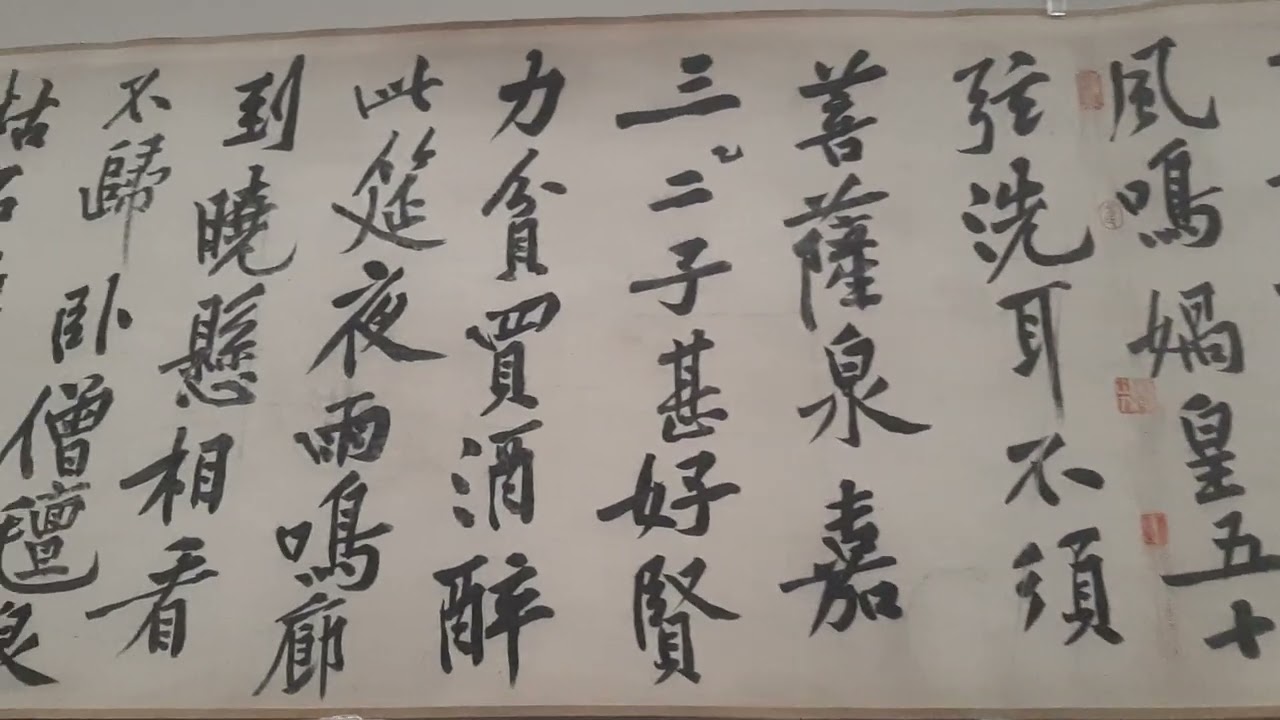 風鳴媧皇五十
弦洗耳不須
菩薩泉嘉
三二二子甚好賢
力貧買酒醉
此筵夜雨鳴廊
到曉懸相看
不歸臥僧氈泉
枯石